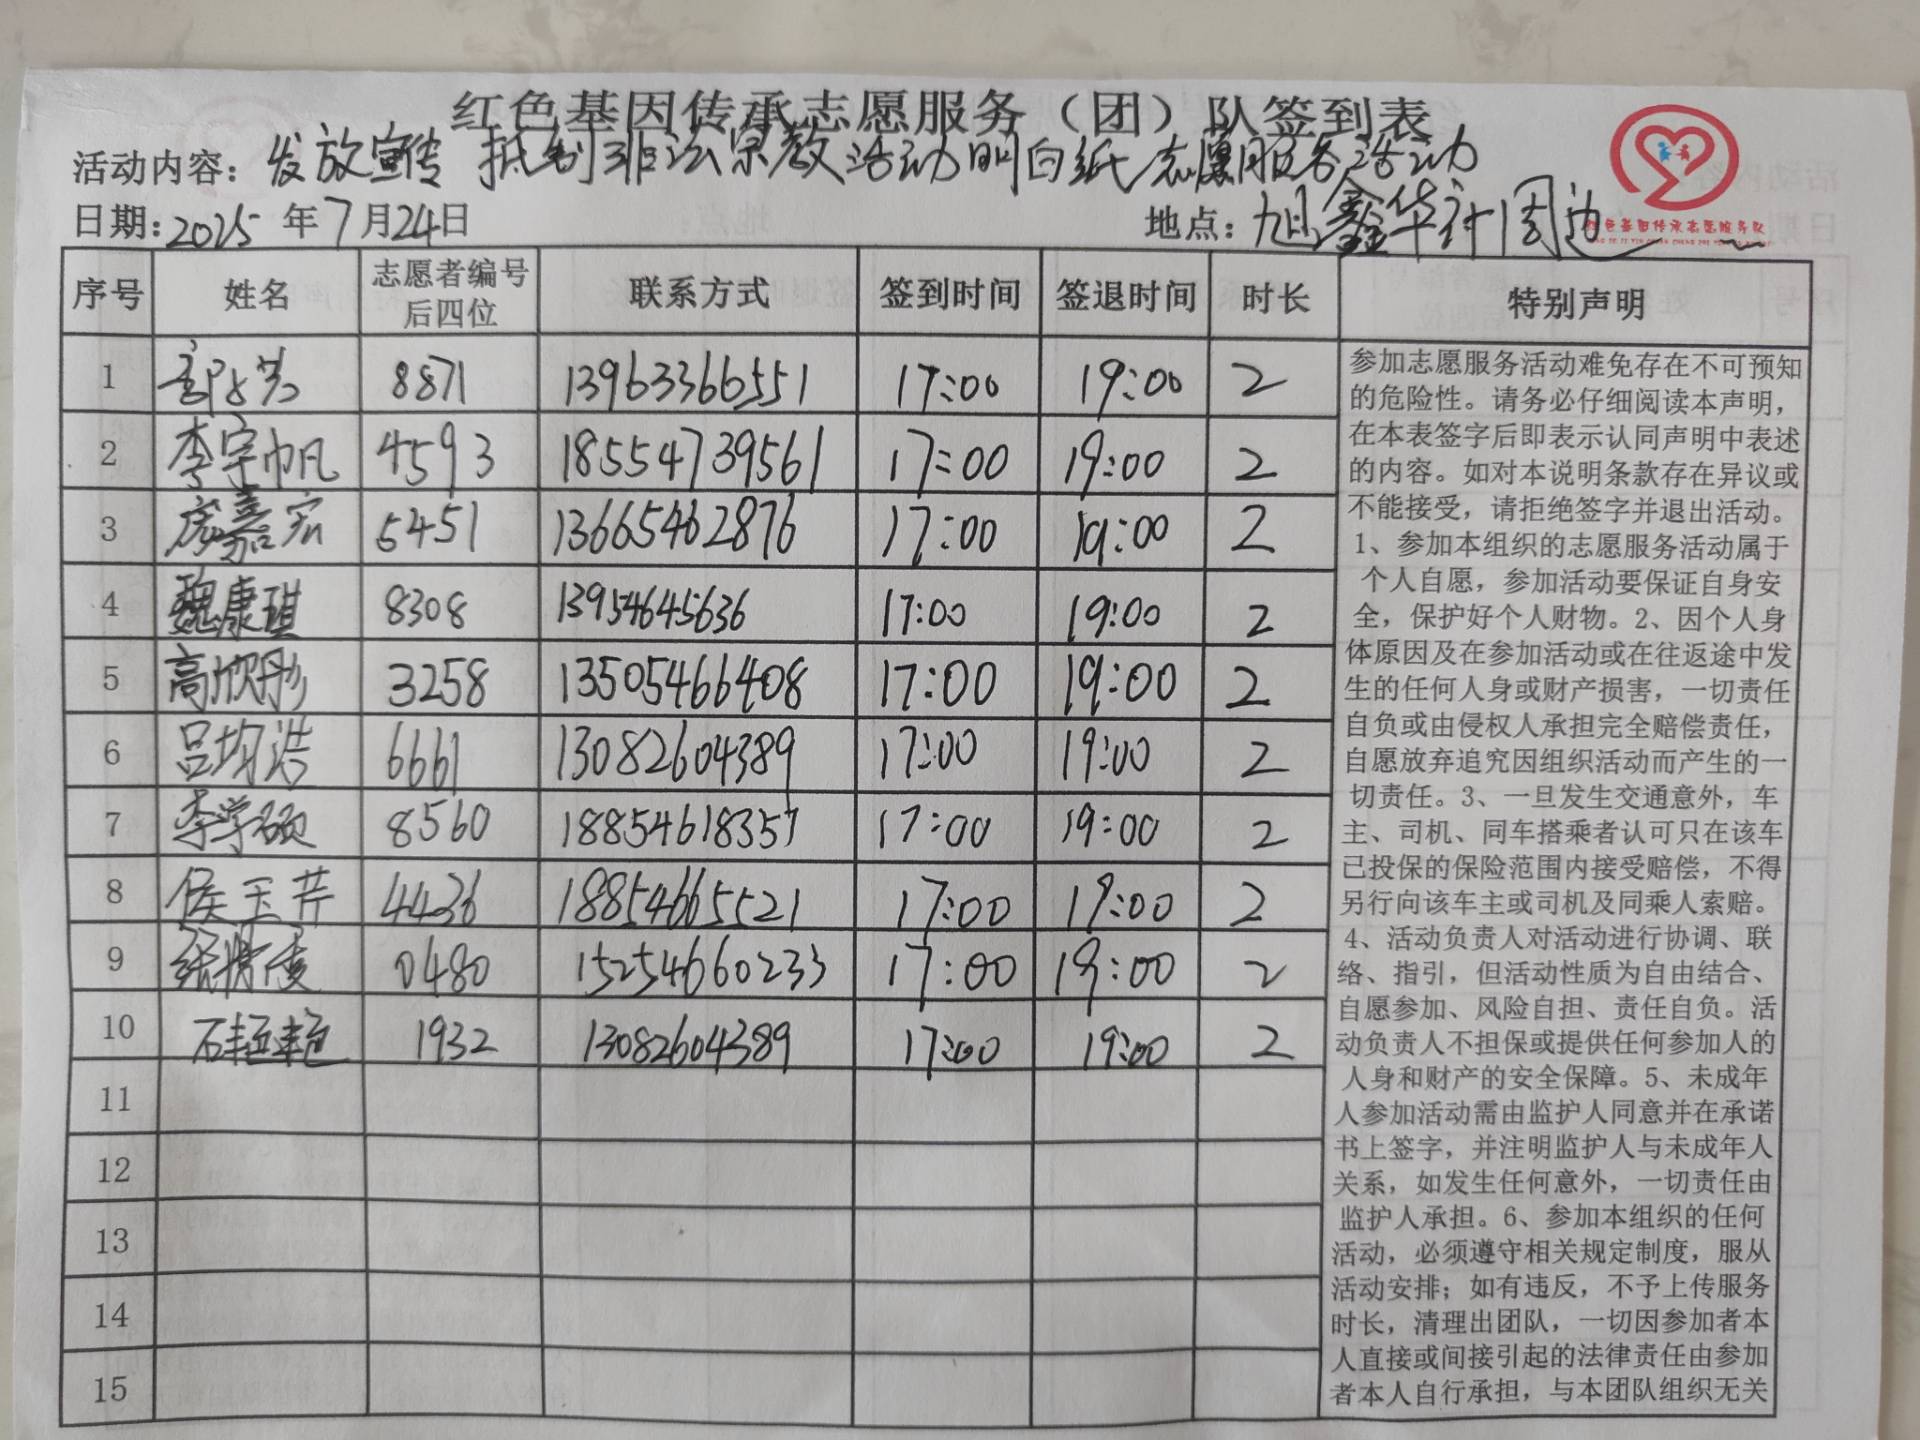 红色基因传承志愿服务（团）队签到表
活动内容：发放宣传 抵制非法宗教活动明白纸志愿服务活动
日期：2025年7月24日 地点：旭鑫华府周边
红色基因传承志愿服务队
序号 姓名 志愿者编号后四位 联系方式 签到时间 签退时间 时长 特别声明
1 8871 13963366551 17:00 19:00 2
2 李宇帆 4593 18554739561 17:00 19:00 2
3 庞嘉宏 5451 13665462876 17:00 19:00 2
4 魏康琪 8308 13954645636 17:00 19:00 2
5 高欣彤 3258 13505466408 17:00 19:00 2
6 吕均浩 6661 13082604389 17:00 19:00 2
7 李学硕 8560 18854618357 17:00 19:00 2
8 侯玉芹 4436 18854665521 17:00 19:00 2
9 0480 15254660233 17:00 19:00 2
10 石艳艳 1932 13082604389 17:00 19:00 2
11
12
13
14
15
参加志愿服务活动难免存在不可预知
的危险性。请务必仔细阅读本声明，
在本表签字后即表示认同声明中表述
的内容。如对本说明条款存在异议或
不能接受，请拒绝签字并退出活动。
1、参加本组织的志愿服务活动属于
个人自愿，参加活动要保证自身安
全，保护好个人财物。2、因个人身
体原因及在参加活动或在往返途中发
生的任何人身或财产损害，一切责任
自负或由侵权人承担完全赔偿责任，
自愿放弃追究因组织活动而产生的一
切责任。3、一旦发生交通意外，车
主、司机、同车搭乘者认可只在该车
已投保的保险范围内接受赔偿，不得
另行向该车主或司机及同乘人索赔。
4、活动负责人对活动进行协调、联
络、指引，但活动性质为自由结合、
自愿参加、风险自担、责任自负。活
动负责人不担保或提供任何参加人的
人身和财产的安全保障。5、未成年
人参加活动需由监护人同意并在承诺
书上签字，并注明监护人与未成年人
关系，如发生任何意外，一切责任由
监护人承担。6、参加本组织的任何
活动，必须遵守相关规定制度，服从
活动安排；如有违反，不予上传服务
时长，清理出团队，一切因参加者本
人直接或间接引起的法律责任由参加
者本人自行承担，与本团队组织无关